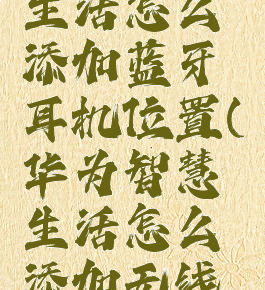 生活怎么
添加蓝牙
耳机位置(
华为智慧
生活怎么
添加无线